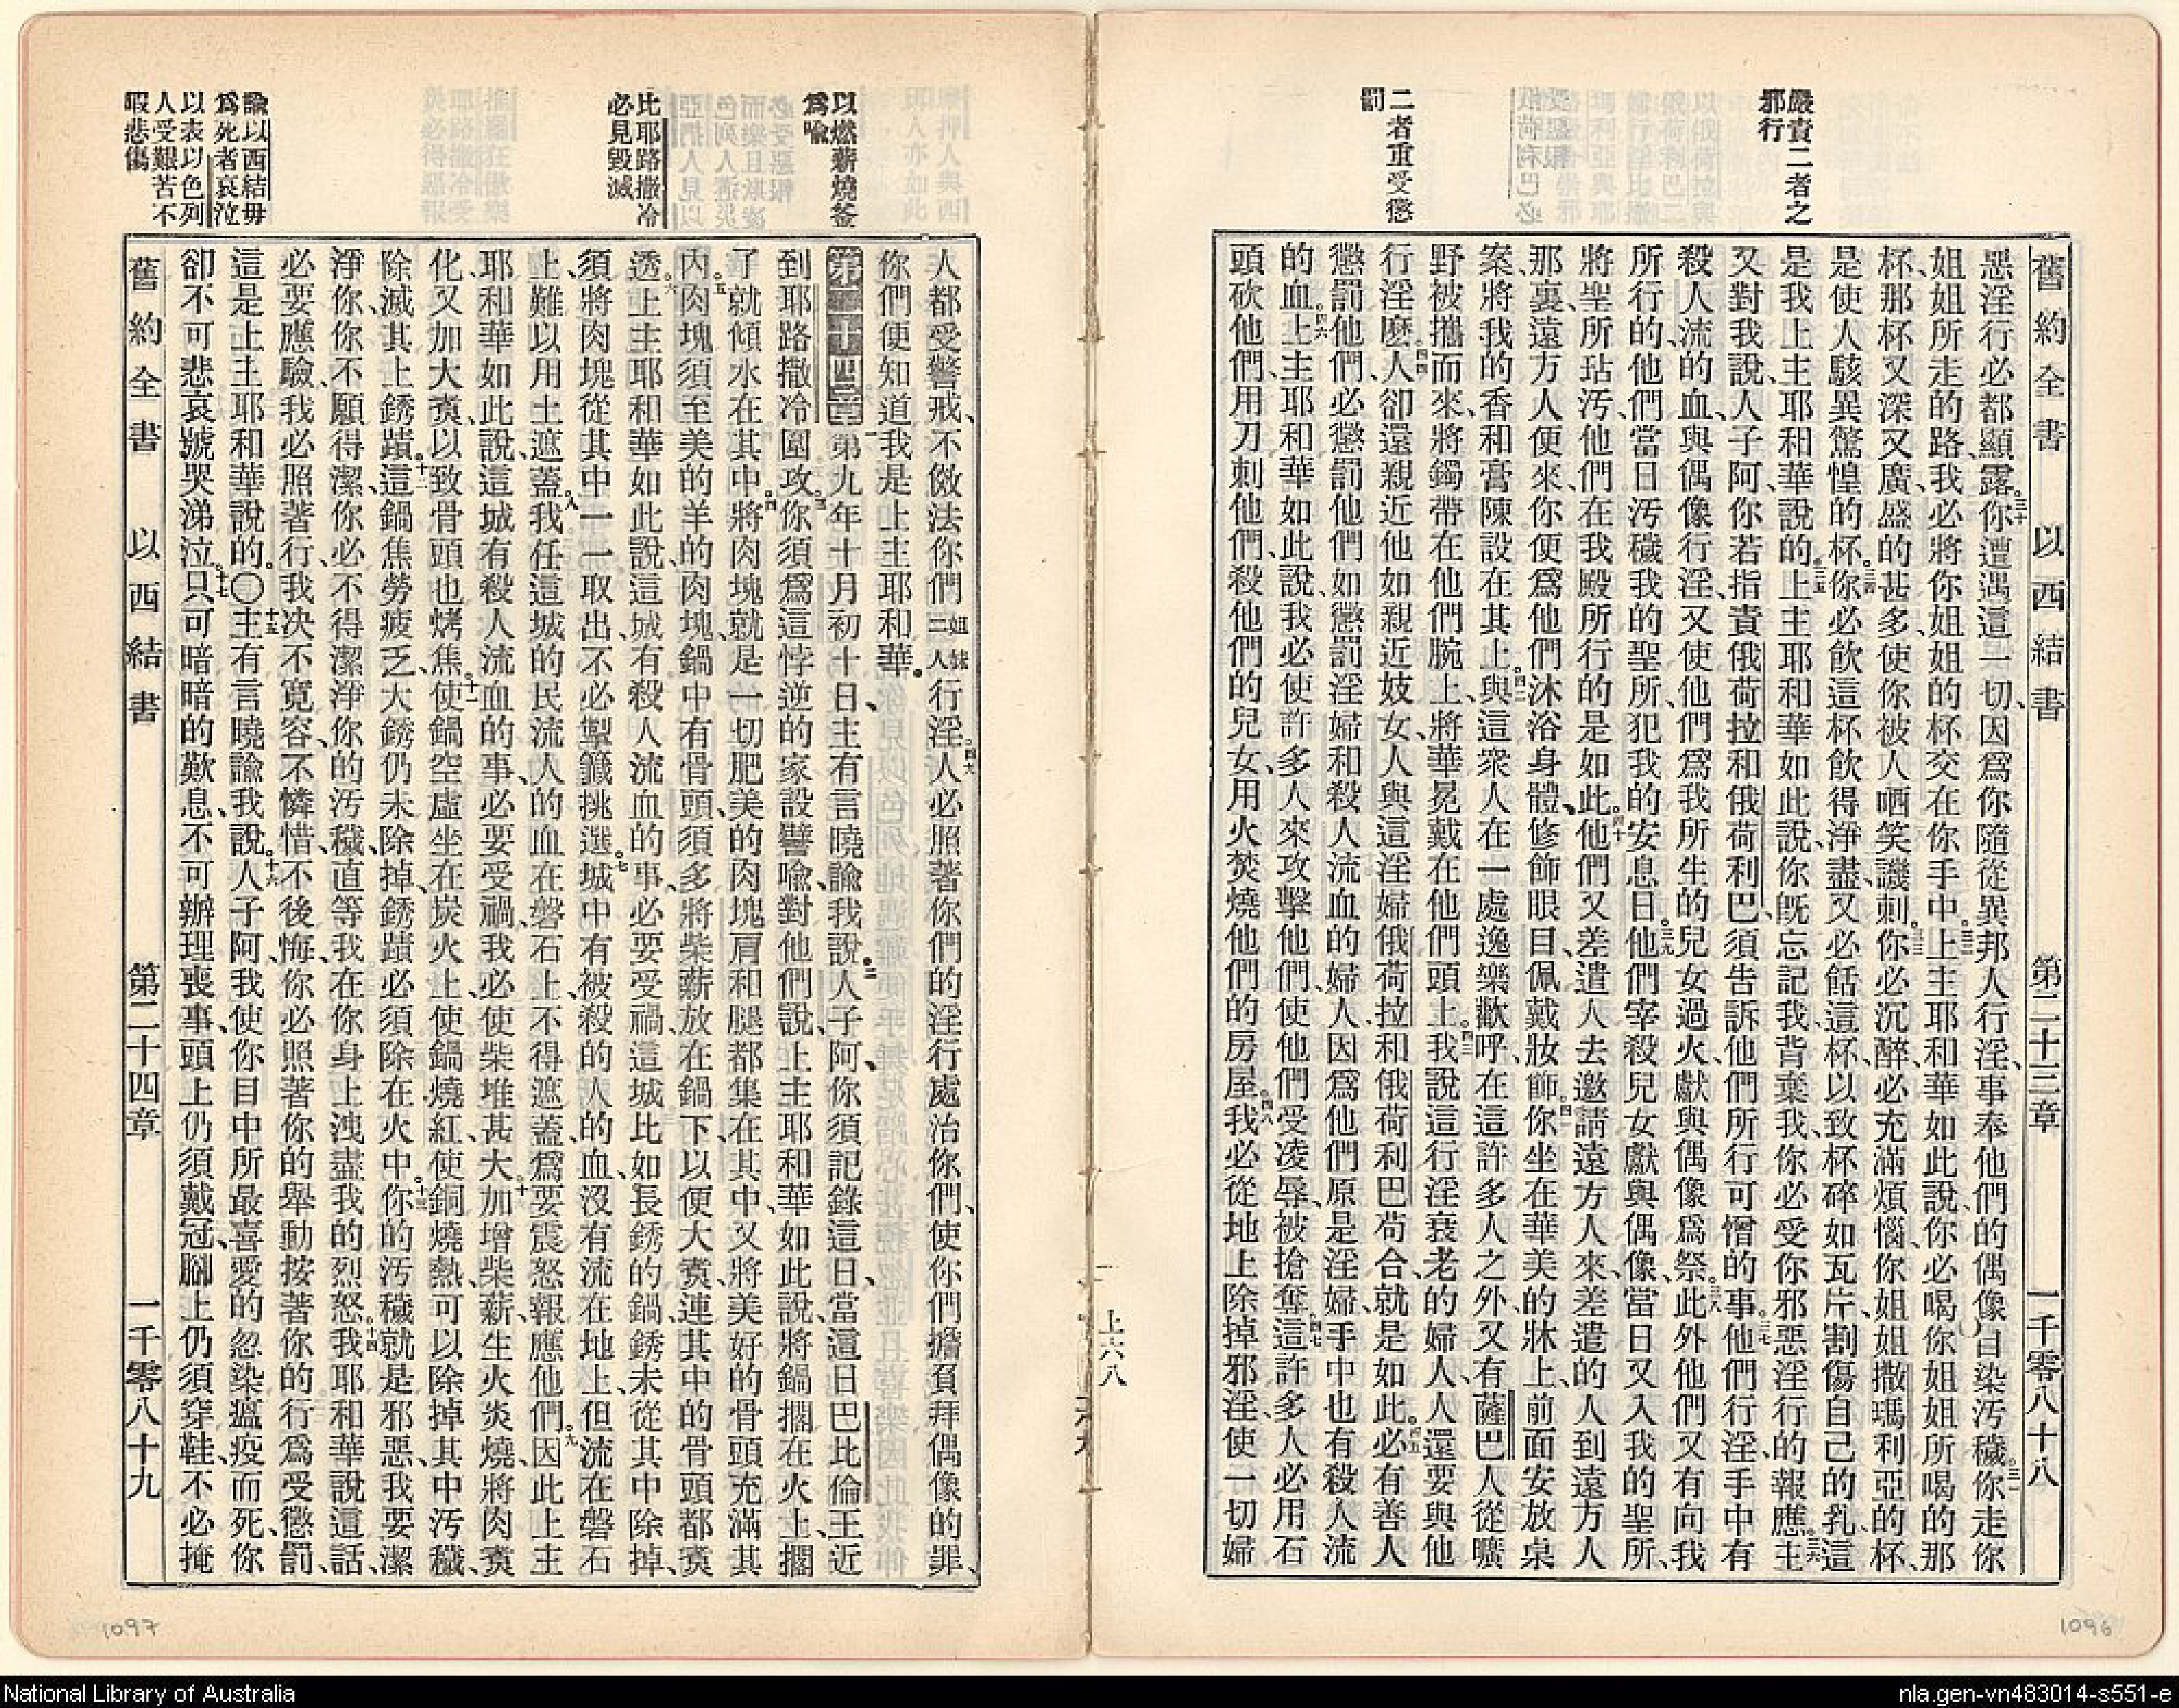 嚴責二者之
邪行
二者重受懲
罰
舊約全書 以西結書 第二十三章 一千零八十八
惡淫行必都顯露。三十你遭遇這一切、因爲你隨從異邦人行淫、事奉他們的偶像、自染汚穢。三一你走你
姐姐所走的路、我必將你姐姐的杯交在你手中。三二上主耶和華如此說、你必喝你姐姐所喝的那
杯、那杯又深又廣、盛的甚多、使你被人哂笑譏刺。三三你必沉醉、必充滿煩惱、你姐姐撒瑪利亞的杯、
是使人駭異驚惶的杯。三四你必飮這杯、飮得淨盡、又必餂這杯、以致杯碎如瓦片、割傷自己的乳、這
是我上主耶和華說的。三五上主耶和華如此說、你旣忘記我、背棄我、你必受你邪惡淫行的報應。三六主
又對我說、人子阿、你若指責俄荷拉和俄荷利巴、須告訴他們所行可憎的事。三七他們行淫、手中有
殺人流的血、與偶像行淫、又使他們爲我所生的兒女過火、獻與偶像爲祭。三八此外他們又有向我
所行的、他們當日汚穢我的聖所、犯我的安息日。三九他們宰殺兒女獻與偶像、當日又入我的聖所、
將聖所玷汚、他們在我殿所行的是如此。四十他們又差遣人去邀請遠方人來、差遣的人到遠方人
那裏、遠方人便來、你便爲他們沐浴身體、修飾眼目、佩戴妝飾。四一你坐在華美的牀上、前面安放桌
案、將我的香和膏陳設在其上。四二與這衆人在一處逸樂歡呼、在這許多人之外、又有薩巴人從曠
野被攜而來、將鐲帶在他們腕上、將華冕戴在他們頭上。四三我說、這行淫衰老的婦人、人還要與他
行淫麽。四四人卻還親近他、如親近妓女、人與這淫婦俄荷拉和俄荷利巴苟合、就是如此。四五必有善人
懲罰他們、必懲罰他們如懲罰淫婦和殺人流血的婦人、因爲他們原是淫婦、手中也有殺人流
的血。四六上主耶和華如此說、我必使許多人來攻擊他們、使他們受凌辱、被搶奪。四七這許多人必用石
頭砍他們、用刀刺他們、殺他們的兒女、用火焚燒他們的房屋。四八我必從地上除掉邪淫、使一切婦
1096
以燃薪燒釜
爲喻
比耶路撒冷
必見毀滅
論以西結毋
爲死者哀泣
以表以色列
人受艱苦不
暇悲傷
人都受警戒、不傚法你們姐妹二人行淫。四九人必照著你們的淫行處治你們、使你們擔負拜偶像的罪、
你們便知道我是上主耶和華。
第二十四章一第九年十月初十日、主有言曉諭我說、二人子阿、你須記錄這日、當這日巴比倫王近
到耶路撒冷圍攻。三你須爲這悖逆的家設譬喻、對他們說、上主耶和華如此說、將鍋擱在火上、擱
了就傾水在其中。四將肉塊就是一切肥美的肉塊、肩和腿都集在其中、又將美好的骨頭充滿其
內。五肉塊須至美的羊的肉塊、鍋中有骨頭、須多將柴薪放在鍋下、以便大煑、連其中的骨頭都煑
透。六上主耶和華如此說、這城有殺人流血的事、必要受禍、這城比如長銹的鍋、銹未從其中除掉、
須將肉塊從其中一一取出、不必掣籤挑選。七城中有被殺的人的血、沒有流在地上、但流在磐石
上、難以用土遮蓋。八我任這城的民流人的血在磐石上、不得遮蓋、爲要震怒報應他們。九因此上主
耶和華如此說、這城有殺人流血的事、必要受禍、我必使柴堆甚大。十加增柴薪、生火炎燒、將肉煑
化、又加大煑、以致骨頭也烤焦。十一使鍋空虛坐在炭火上、使鍋燒紅、使銅燒熱、可以除掉其中汚穢、
除滅其上銹蹟。十二這鍋焦勞疲乏、大銹仍未除掉、銹蹟必須除在火中。十三你的汚穢就是邪惡、我要潔
淨你、你不願得潔、你必不得潔淨你的汚穢、直等我在你身上洩盡我的烈怒。十四我耶和華說這話、
必要應驗、我必照著行、我决不寬容、不憐惜、不後悔、你必照著你的舉動、按著你的行爲受懲罰、
這是上主耶和華說的。〇十五主有言曉諭我說、十六人子阿、我使你目中所最喜愛的忽染瘟疫而死、你
卻不可悲哀號哭涕泣。十七只可暗暗的歎息、不可辦理喪事、頭上仍須戴冠、腳上仍須穿鞋、不必掩
舊約全書 以西結書 第二十四章 一千零八十九
1097
National Library of Australia
nla.gen-vn483014-s551-e